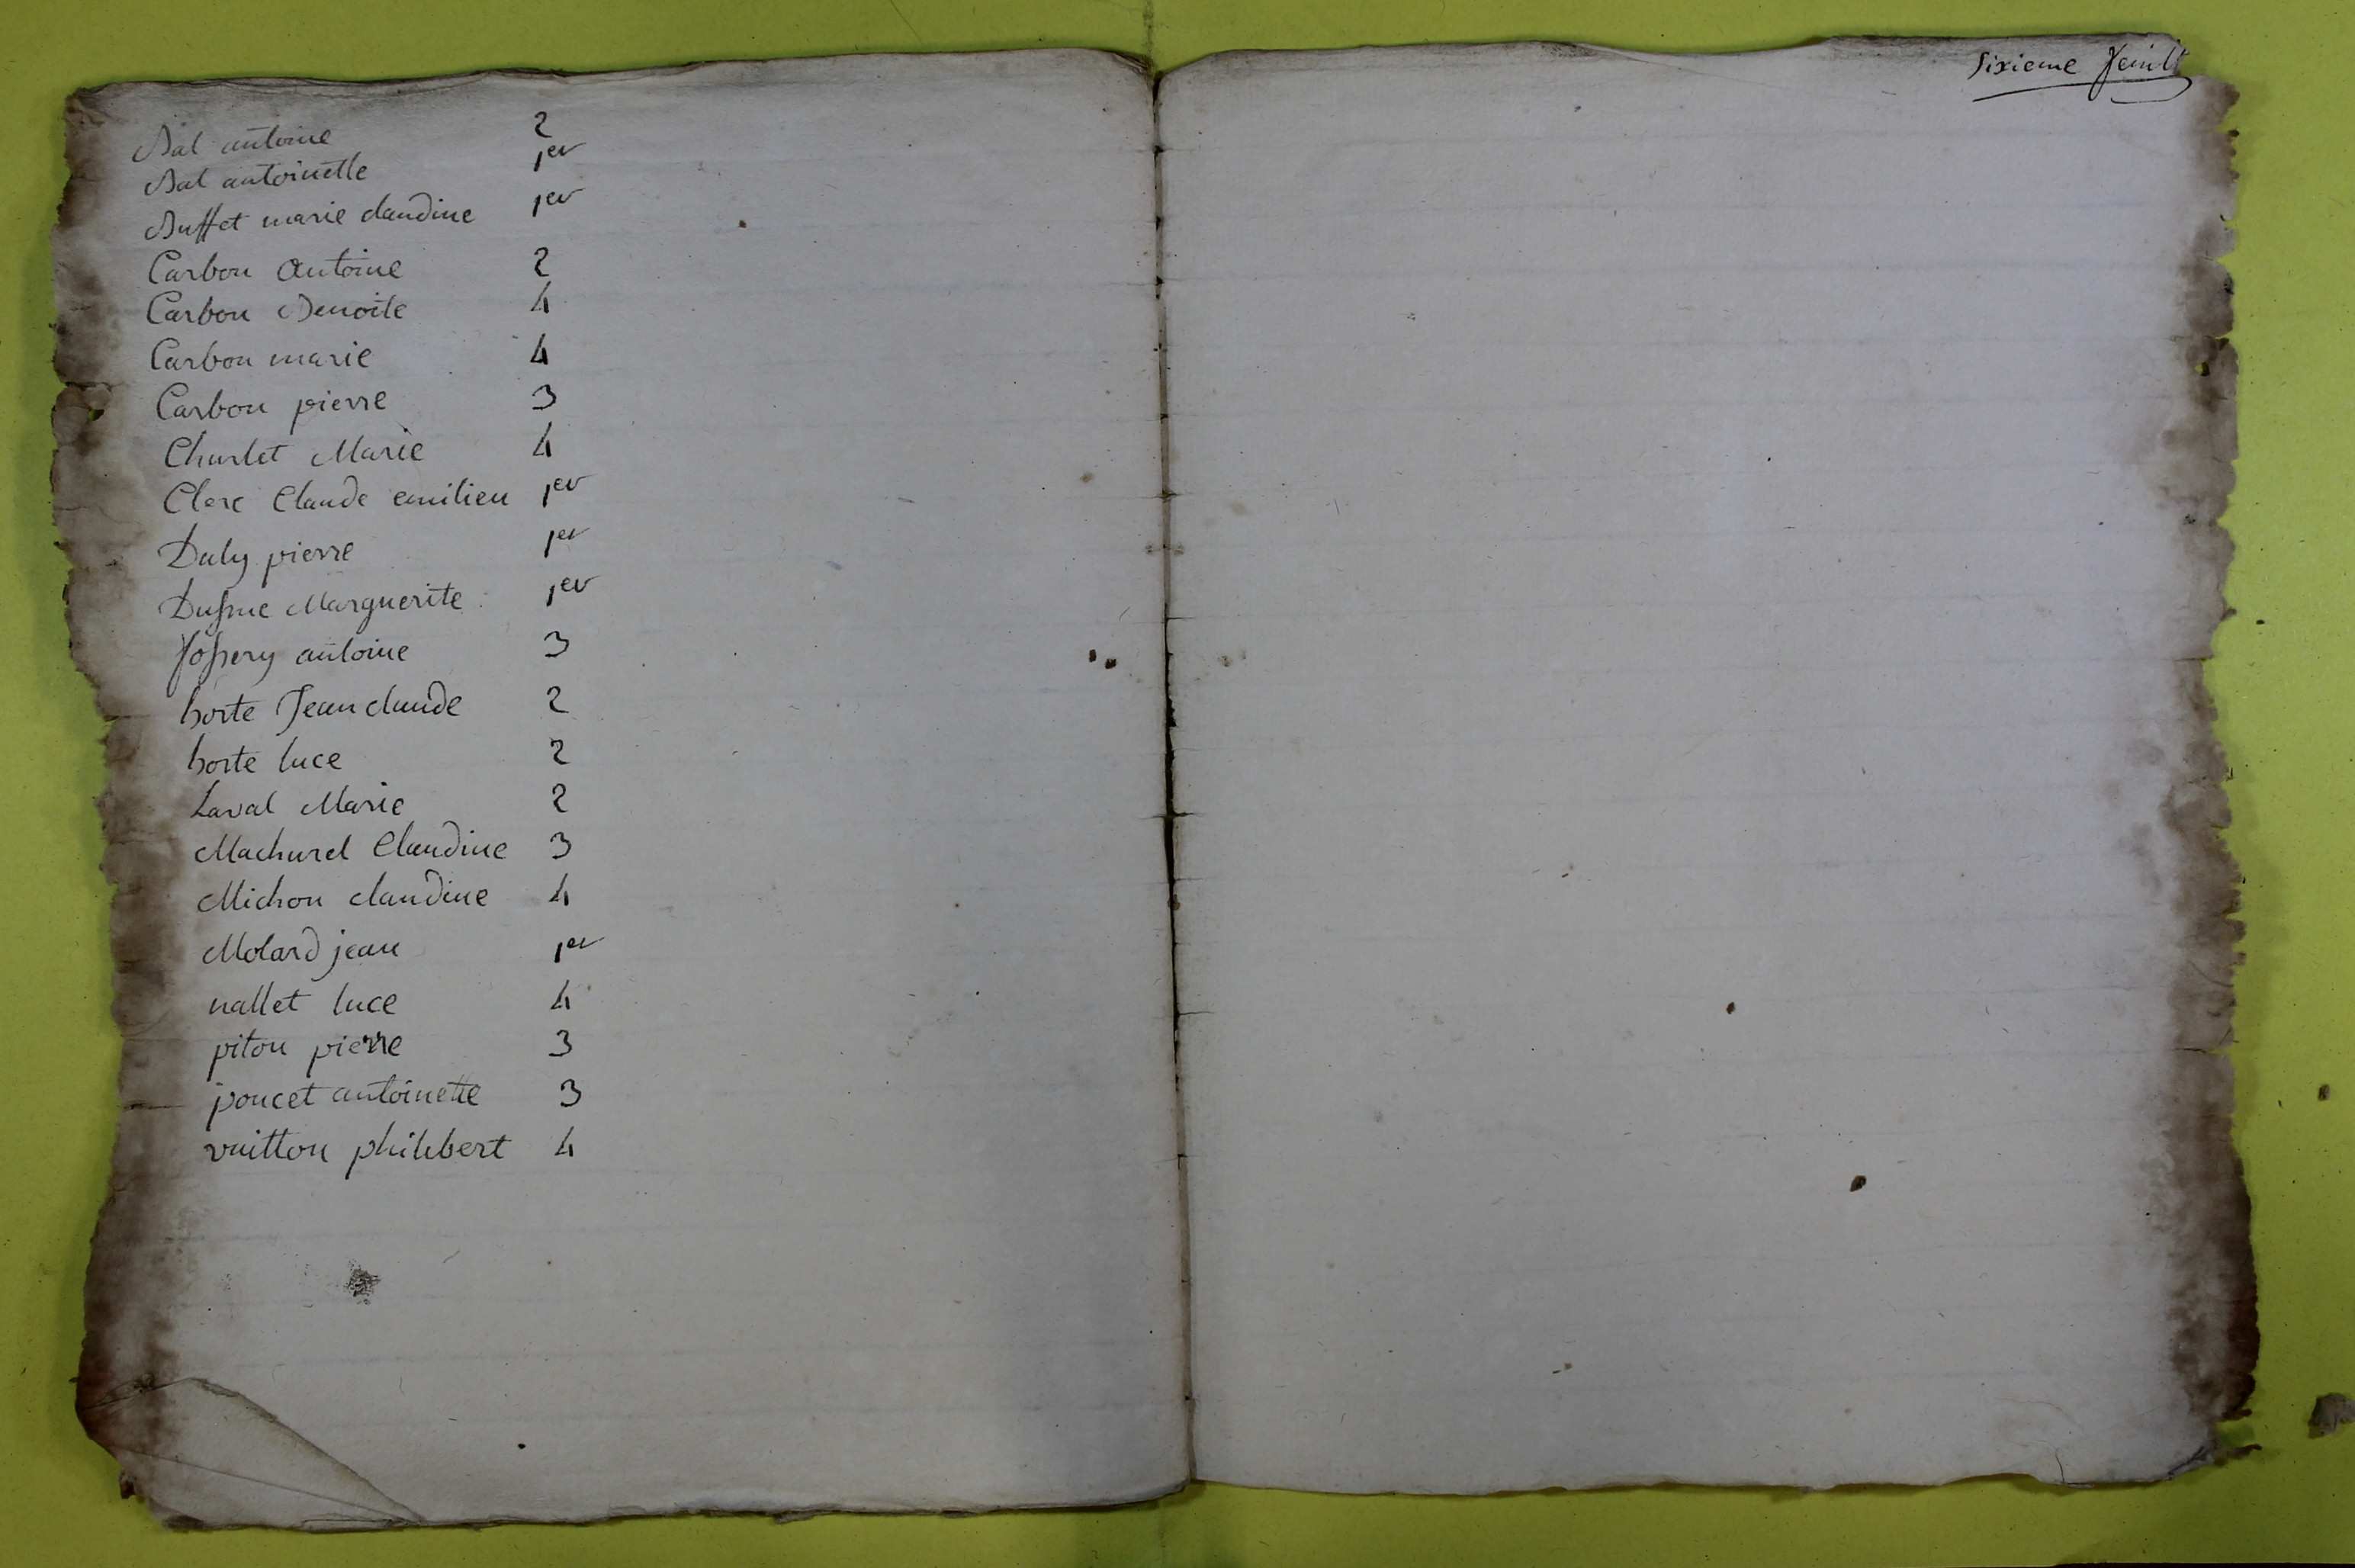 Bal antoine 2
Bal antoinette 1er
Buffet marie claudine 1er
Carbon Antoine 2
Carbon Benoite 4
Carbon marie 4
Carbon pierre 3
Churlet Marie 4
Clerc Claude emilien 1er
Duby pierre 1er
Marguerite 1er
antoine 3
horte Jean claude 2
horte luce 2
Laval Marie 2
Machurel Claudine 3
Michon claudine 4
Molard jean 1er
nallet luce 4
piton pierre 3
poncet antoinette 3
vuitton philibert 4
Sixieme feuillt